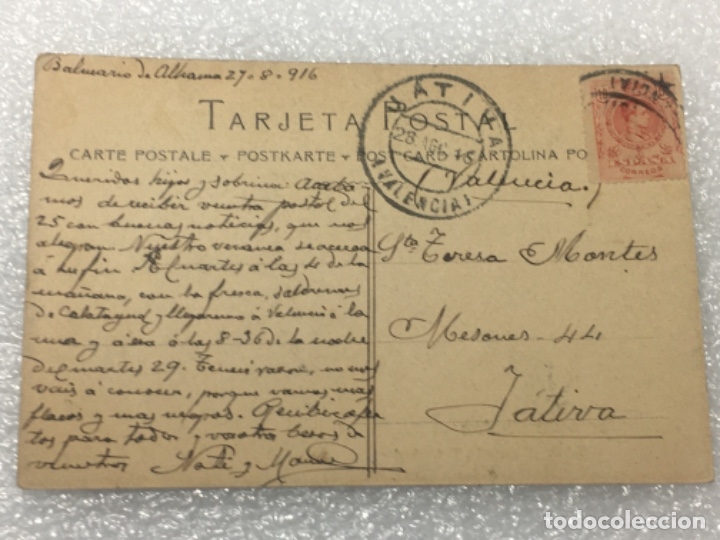 Balneario de Alhama 27-8-916
TARJETA POSTAL
CARTE POSTALE POSTKARTE POST CARD CARTOLINA PO
JÁTIVA
28 AGO 16
(VALENCIA)
CORREOS
(Valencia)
Queridos hijos y sobrina Acaba
mos de recibir vuestra postal del
25 con buenas noticias, que nos
alegran Nuestro veraneo se acerca
á su fin El martes á las 4 de la
mañana, con la fresca, saldremos
de Calatayud y llegaremos á Valencia á la
una y á esa á las 8-36 de la noche
del martes 29. no nos
vais á conocer, porque vamos más
flacos y mas negros. Recibir
tos para todos y vuestra besos de
vuestros Nati y
Sta Teresa Montes
Mesones-44
Játiva
todocoleccion